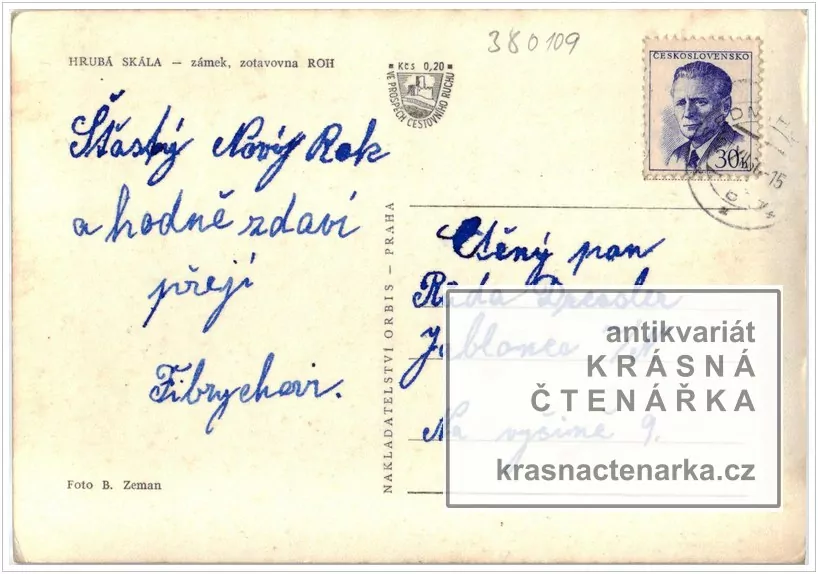 380109
HRUBÁ SKÁLA — zámek, zotavovna ROH
Kčs 0,20
VE PROSPĚCH CESTOVNÍHO RUCHU
ČESKOSLOVENSKO
30h
15
Šťastý Nový Rok
a hodně zdaví
přejí
Fibrychovi.
NAKLADATELSTVÍ ORBIS — PRAHA
Ctěný pan
Jablonec
Na výšině 9.
antikvariát
KRÁSNÁ
ČTENÁŘKA
krasnactenarka.cz
Foto B. Zeman